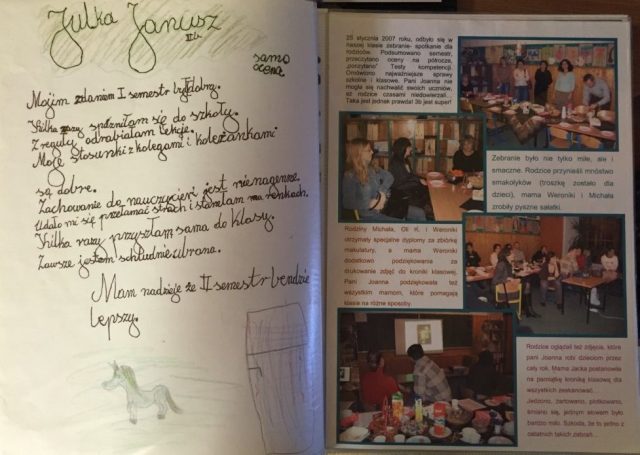 Julka Janusz
IIIb
samo
ocena
Moim zdaniem I semestr był dobry.
Kilka razy spóźniłam się do szkoły.
Z reguły odrabiałam lekcje.
Moje stosunki z kolegami i koleżankami
są dobre.
Zachowanie do nauczycieli jest nienagenne.
Udało mi się przełamać strach i stanęłam na rękach.
Kilka razy przyszłam sama do klasy.
Zawsze jestem schludnie ubrana.
Mam nadzieje że II semestr bendzie
lepszy.
25 stycznia 2007 roku, odbyło się w
naszej klasie zebranie- spotkanie dla
rodziców. Podsumowano semestr,
przeczytano oceny na półrocze,
„poczytano” Testy kompetencji.
Omówiono najważniejsze sprawy
szkolne i klasowe. Pani Joanna nie
mogła się nachwalić swoich uczniów,
aż rodzice czasami niedowierzali...
Taka jest jednak prawda! 3b jest super!
Zebranie było nie tylko miłe, ale i
smaczne. Rodzice przynieśli mnóstwo
smakołyków (troszkę zostało dla
dzieci), mama Weroniki i Michała
zrobiły pyszne sałatki.
Rodziny Michała, Oli K. i Weroniki
otrzymały specjalne dyplomy za zbiórkę
makulatury, a mama Weroniki
dodatkowo podziękowania za
drukowanie zdjęć do kroniki klasowej.
Pani Joanna podziękowała też
wszystkim mamom, które pomagają
klasie na różne sposoby.
Rodzice oglądali też zdjęcia, które
pani Joanna robi dzieciom przez
cały rok. Mama Jacka postanowiła
na pamiątkę kronikę klasową dla
wszystkich zeskanować...
Jedzono, żartowano, plotkowano,
śmiano się, jednym słowem było
bardzo miło. Szkoda, że to jedno z
ostatnich takich zebrań...